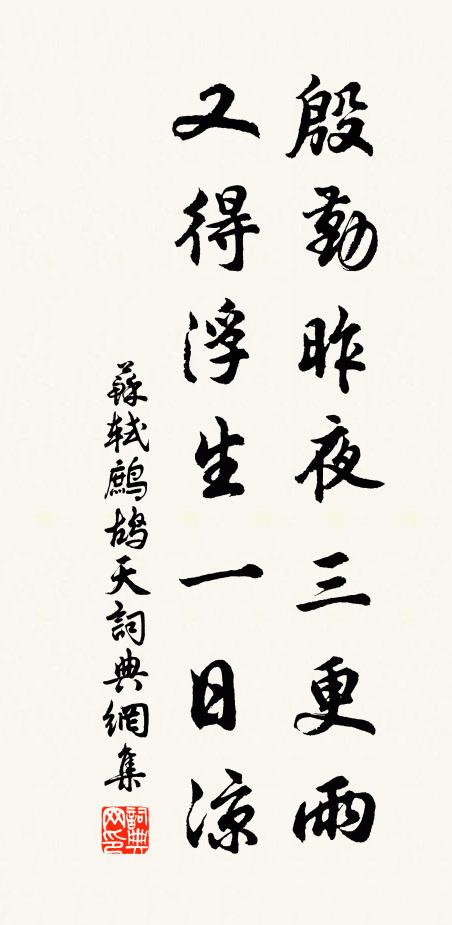 殷勤昨夜三更雨
又得浮生一日涼
蘇軾鷓鴣天詞典網集
詞典網印